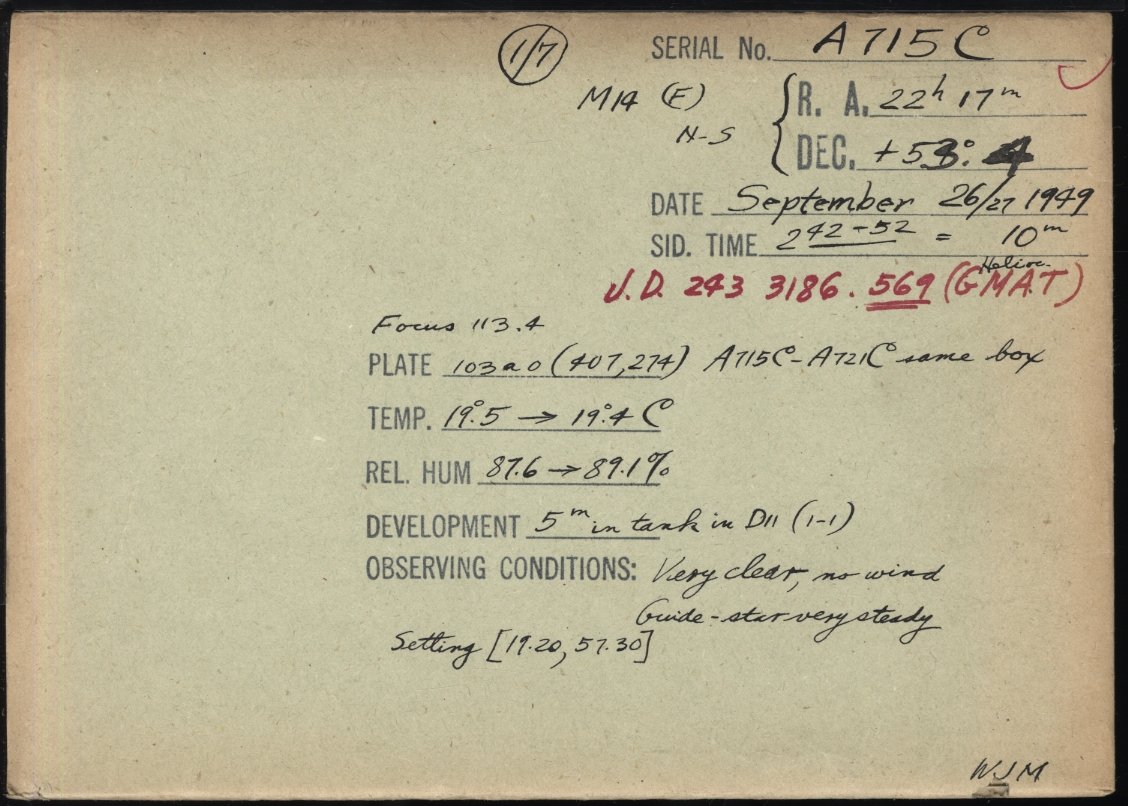 1/7
SERIAL No. A715C
M14 (F) R. A. 22h 17m
N-S DEC. +53°. 4
DATE September 26/27 1949
SID. TIME 2 42-52 = 10m
J.D. 243 3186.569 (Helioc. GMAT)
Focus 113.4
PLATE 103a0 (407,274) A715C-A721C same box
TEMP. 19°.5 → 19°.4 C
REL. HUM 87.6 → 89.1%
DEVELOPMENT 5m in tank in D11 (1-1)
OBSERVING CONDITIONS: Very clear, no wind
Guide-star very steady
Setting [19.20, 57.30]
WJM